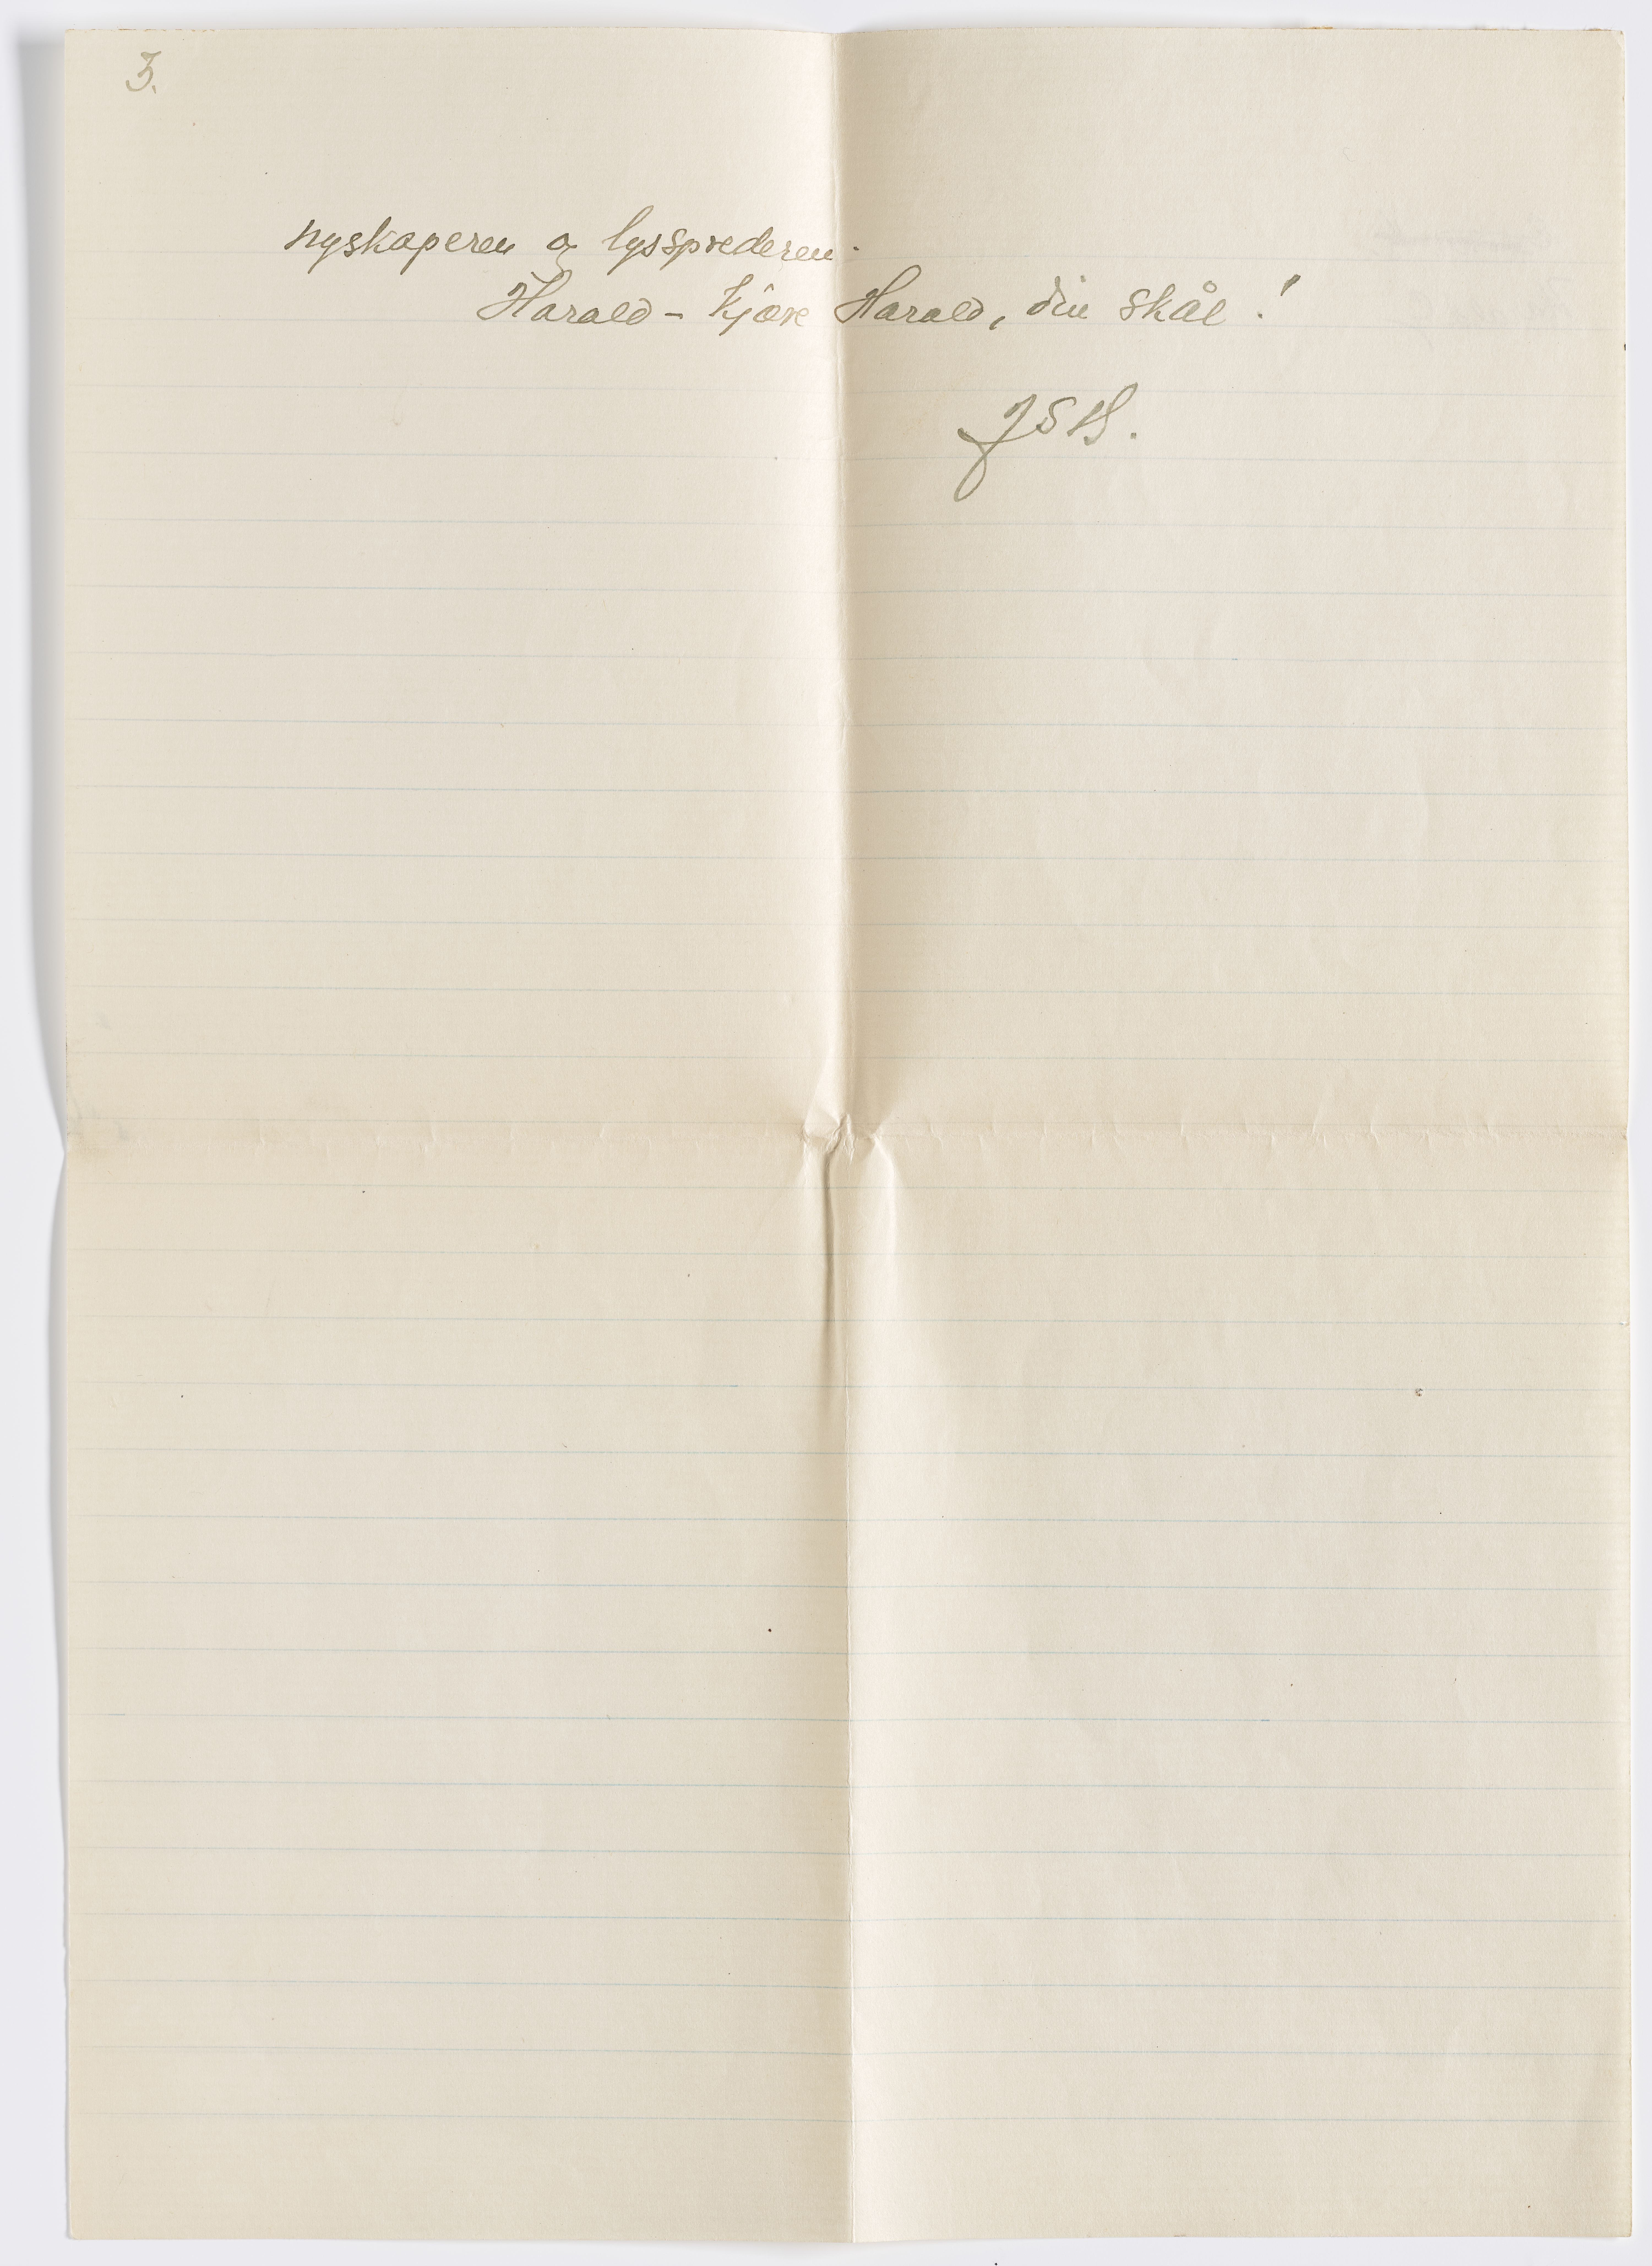 3.
nyskaperen og lyssprederen.
Harald - kjære Harald, din skål!
JSW.